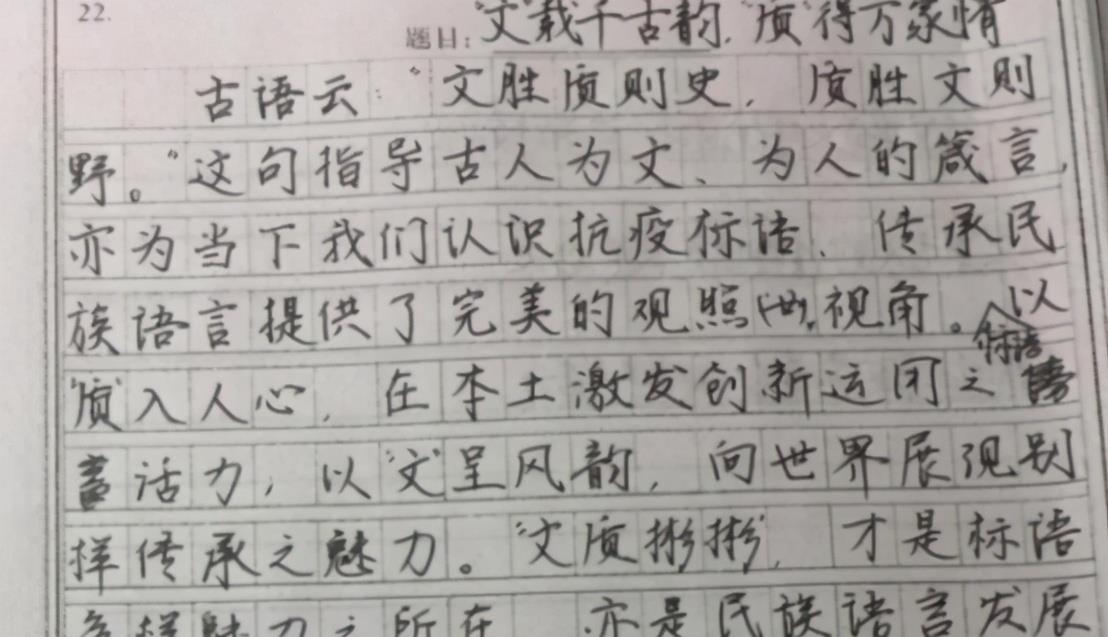 22.
题目：“文”载千古韵，“质”得万家情
古语云：“文胜质则史，质胜文则
野。”这句指导古人为文、为人的箴言，
亦为当下我们认识抗疫标语、传承民
族语言提供了完美的观照视角。以
标语
“质”入人心，在本土激发创新运用之
活力，以“文”呈风韵，向世界展现别
样传承之魅力。“文质彬彬”，才是标语
多样魅力之所在，亦是民族语言发展